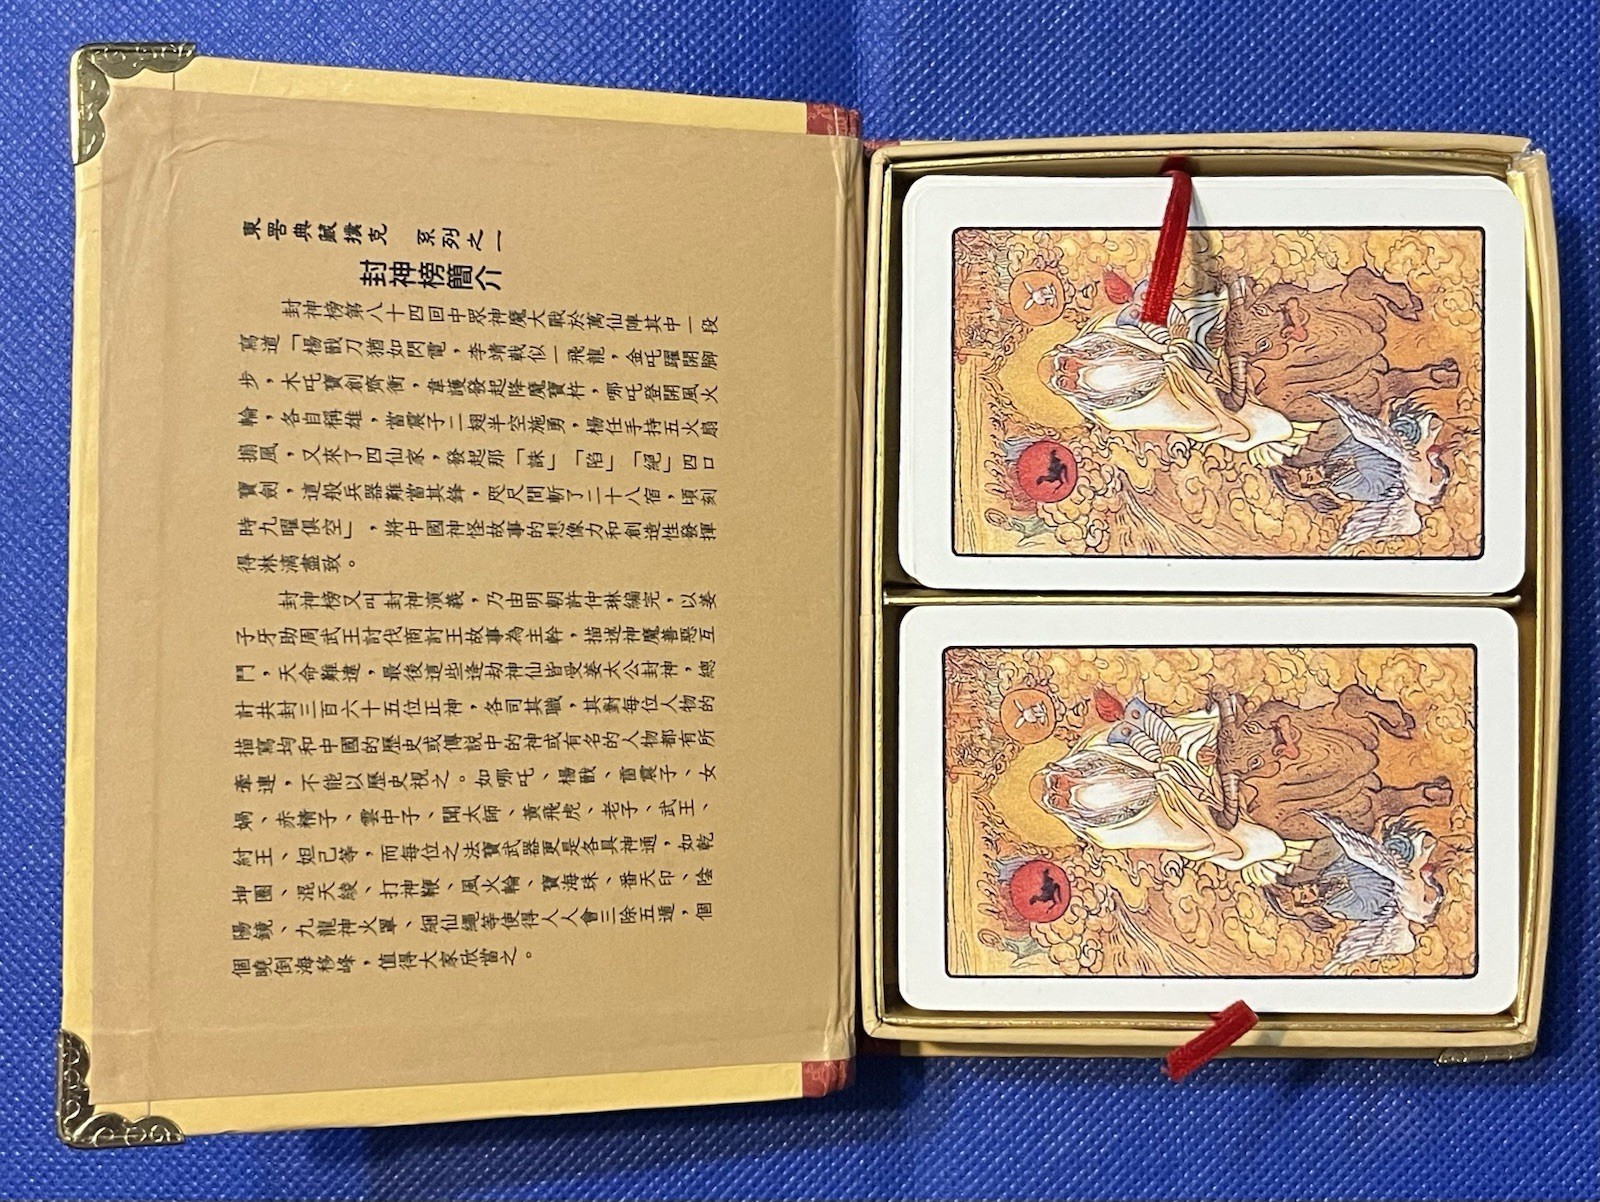 東罟典藏撲克　系列之一
封神榜簡介
封神榜第八十四回中眾神魔大戰於萬仙陣其中一段
寫道「楊戩刀猶如閃電，李靖戟似一飛龍，金吒躍開腳
步，木吒寶創齊衝，韋護發起降魔寶杵，哪吒登開風火
輪，各自稱雄，當震子二翅半空施勇，楊任手持五火扇
搧風，又來了四仙家，發起那「誅」「陷」「絕」四口
寶劍，這般兵器難當其鋒，咫尺間斬了二十八宿，頃刻
時九曜俱空」，將中國神怪故事的想像力和創造性發揮
得淋漓盡致。
封神榜又叫封神演義，乃由明朝許仲琳編完，以姜
子牙助周武王討伐商討王故事為主幹，描述神魔善惡互
鬥，天命難違，最後這些逢劫神仙皆受姜太公封神，總
計共封三百六十五位正神，各司其職，其對每位人物的
描寫均和中國的歷史或傳說中的神或有名的人物都有所
牽連，不能以歷史視之。如哪吒、楊戩、雷震子、女
媧、赤精子、雲中子、聞大師、黃飛虎、老子、武王、
紂王、妲己等，而每位之法寶武器更是各具神通，如乾
坤圈、混天綾、打神鞭、風火輪、寶海珠、番天印、陰
陽鏡、九龍神火罩、綑仙繩等使得人人會三除五遁，個
個曉倒海移峰，值得大家欣當之。